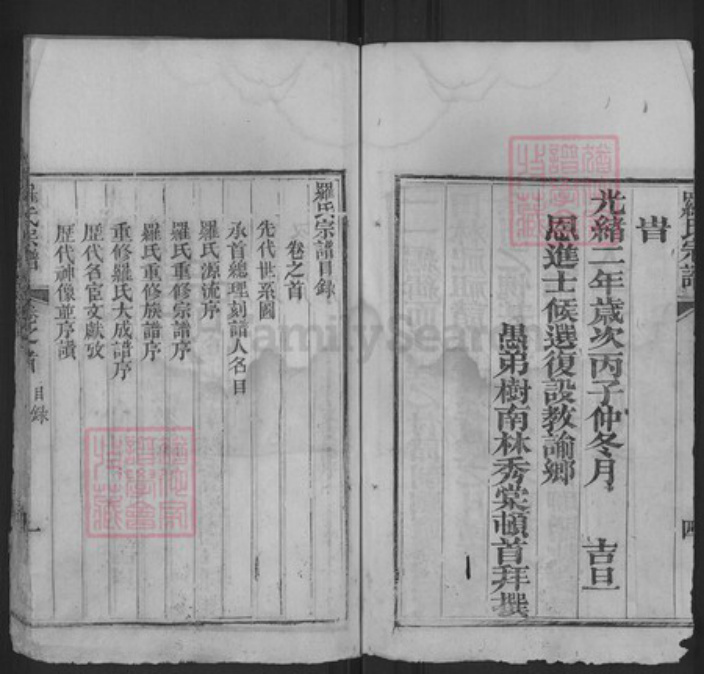 羅氏宗譜
四
旹
光緒二年歲次丙子仲冬月　吉旦
恩進士候選復設教諭鄉
愚弟樹南林秀棠頓首拜撰
羅氏宗譜目錄
卷之首
先代世系圖
承首總理刻譜人名目
羅氏源流序
羅氏重修宗譜序
羅氏重修族譜序
重修羅氏大成譜序
歷代名宦文獻攷
歷代神像並序讚
羅氏宗譜
卷之首
目錄
一
FamilySearch